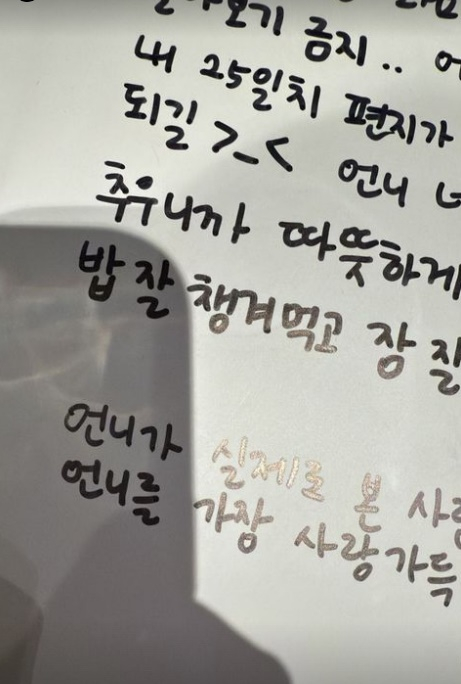 금지..
내 25일치 편지가
되길 >_< 언니
추우니까 따뜻하게
밥 잘 챙겨먹고 잠 잘
언니가 실제로 본
언니를 가장 사랑가득